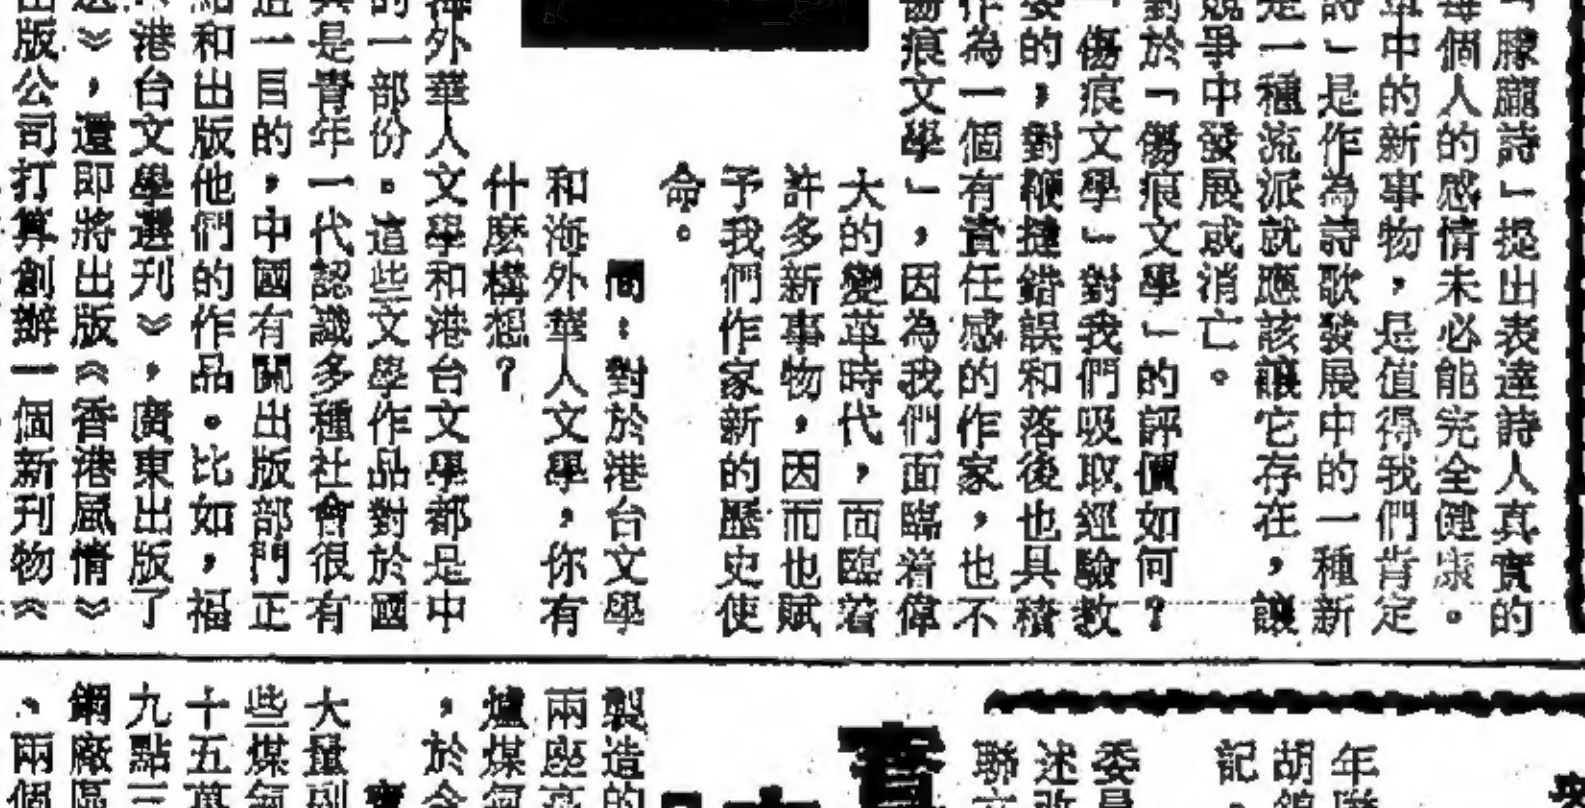 「朦朧詩」提出表達詩人真實的
每個人的感情未必能完全健康。
中的新事物，是值得我們肯定
詩」是作為詩歌發展中的一種新
是一種流派就應該讓它存在，讓
競爭中發展或消亡。
對於「傷痕文學」的評價如何？
「傷痕文學」對我們吸取經驗教
要的，對鞭撻錯誤和落後也具積
作為一個有責任感的作家，也不
傷痕文學」，因為我們面臨着偉
大的變革時代，面臨着
許多新事物，因而也賦
予我們作家新的歷史使
命。
問：對於港台文學
和海外華人文學，你有
什麼構想？
海外華人文學和港台文學都是中
的一部份。這些文學作品對於國
其是青年一代認識多種社會很有
這一目的，中國有關出版部門正
和出版他們的作品。比如，福
港台文學選刊》，廣東出版了
選》，還即將出版《香港風情》
出版公司打算創辦一個新刊物《
年聯
胡錦
記，
委員
述改
聯
製造的
兩座高
爐煤氣
，於今
大量副
些煤氣
十五萬
九點三
鋼廠區
、兩個